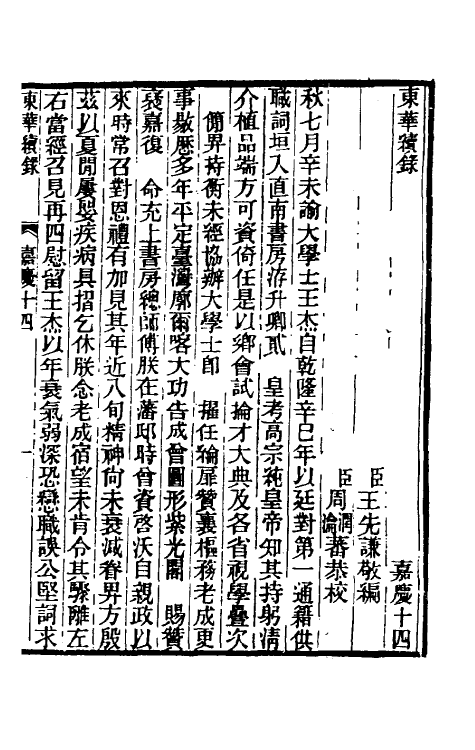 東華續錄　嘉慶十四
臣王先謙敬編
臣周潤蕃周瀹蕃恭校
秋七月辛未諭大學士王杰自乾隆辛巳年以廷對第一通籍供
職詞垣入直南書房洊升卿貳　皇考高宗純皇帝知其持躬淸
介植品端方可資倚任是以鄉會試掄才大典及各省視學疊次
簡畀持衡未經協辦大學士卽　擢任綸扉贊襄樞務老成更
事敭歷多年平定臺灣廓爾喀大功告成曾圖形紫光閣　賜贊
襃嘉復　命充上書房總師傅朕在藩邸時曾資啓沃自親政以
來時常召對恩禮有加見其年近八旬精神尙未衰減眷畀方殷
茲以夏閒屢嬰疾病具摺乞休朕念老成宿望未肯令其驟離左
右當經召見再四慰留王杰以年衰氣弱深恐戀職誤公堅詞求
東華續錄　嘉慶十四　一